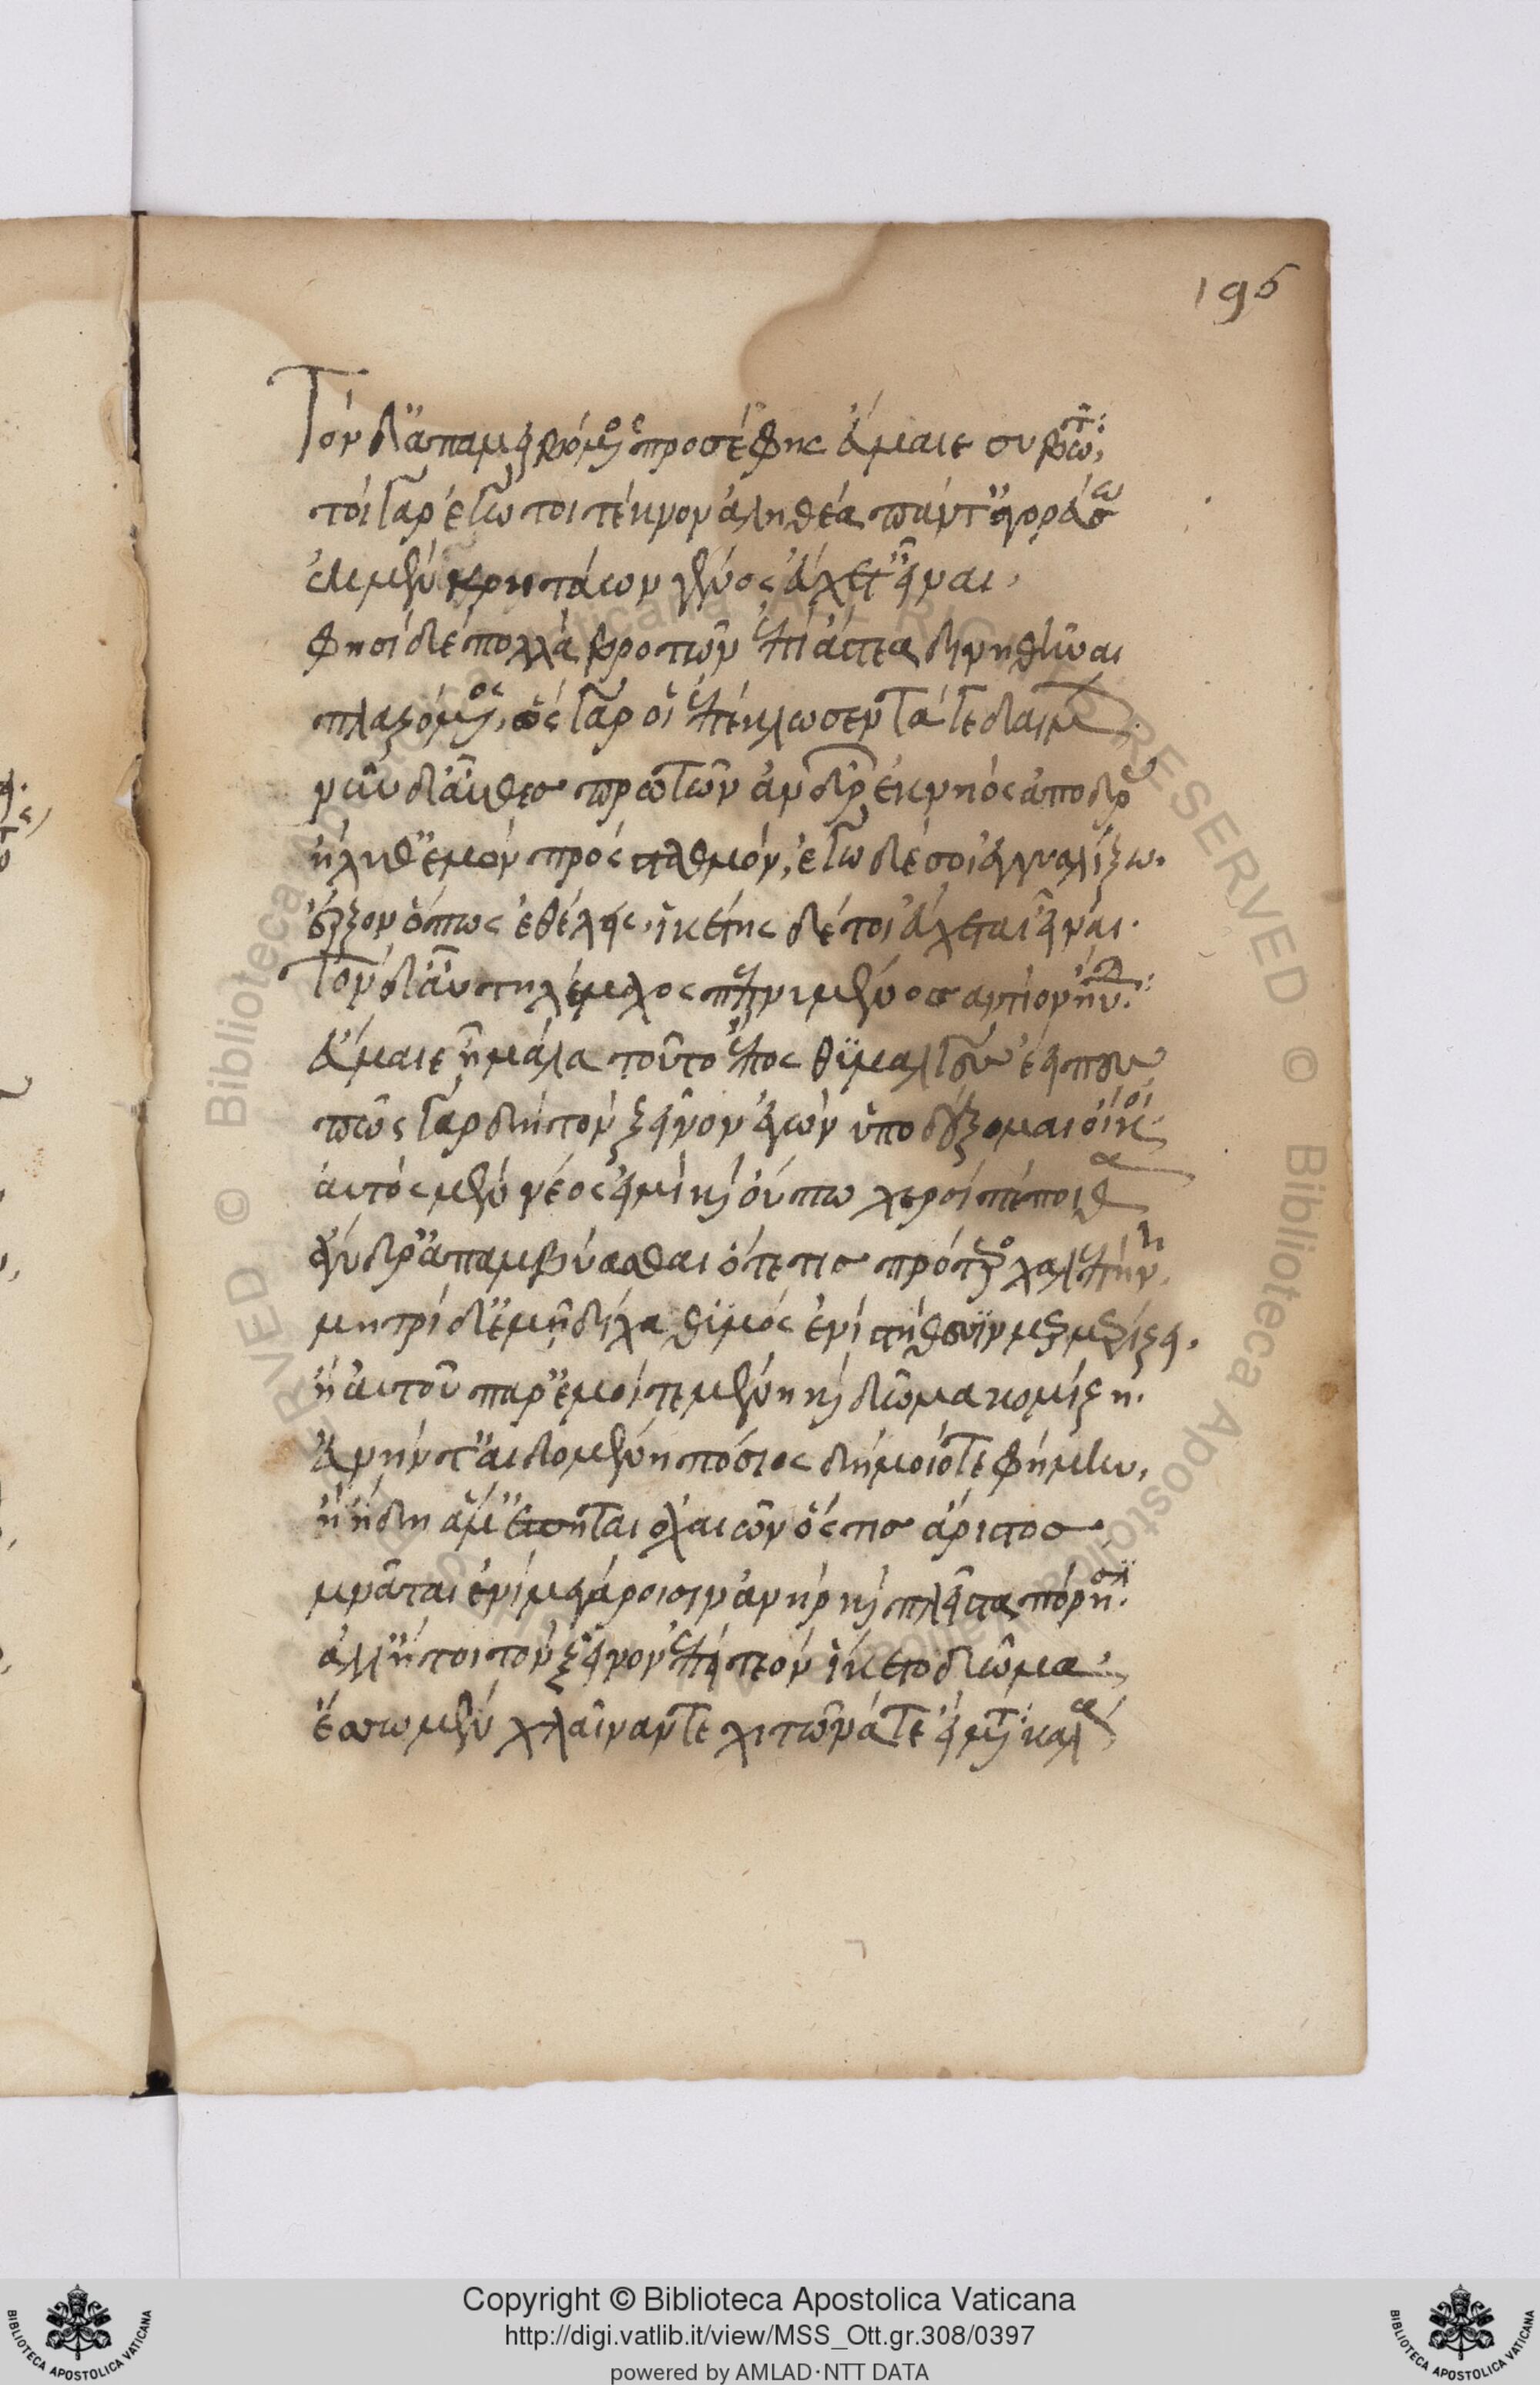 195
Τὸν δ' ἀπαμειβόμενος προσέφης εὔμαιε συβῶτα:
τοὶ γὰρ ἐγώ τοι τέκνον ἀληθέα πάντ' ἀγορεύσω
ἐκ μὲν κρητάων γένος εὔχετ' εἶναι,
φησὶ δὲ πολλὰ βροτῶν ἐπὶ ἄστεα δινηθῆναι
πλαζόμενος, ὣς γάρ οἱ ἐπέκλωσεν τά τε δαίμων.
νῦν δ' αὖ θεσπρωτῶν ἀνδρῶν ἐκ νηὸς ἀποδρὰς
ἤλυθ' ἐμὸν πρὸς σταθμόν, ἐγὼ δέ σοι ἐγγυαλίξω.
ἔρξον ὅπως ἐθέλεις. ἱκέτης δέ τοι εὔχεται εἶναι.
Τὸν δ' αὖ τηλέμαχος πεπνυμένος ἀντίον ηὔδα:
εὔμαιε ἦ μάλα τοῦτο ἔπος θυμαλγὲς ἔειπες
πῶς γὰρ δὴ τὸν ξεῖνον ἐγὼν ὑποδέξομαι οἴκοι
αὐτὸς μὲν νέος εἰμὶ καὶ οὔπω χερσὶ πέποιθα
ἄνδρ' ἀπαμύνασθαι ὅτε τις πρότερος χαλεπήνη.
μητρὶ δ' ἐμῇ δίχα θυμὸς ἐνὶ στήθεσσι μερμερίζει.
ἢ αὐτοῦ παρ' ἐμοί τε μένῃ καὶ δῶμα κομίζῃ.
εὐνήν τ' αἰδομένη πόσιος δήμοιό τε φήμιν,
ἢ ἤδη ἅμ' ἕπηται ἀχαιῶν ὅς τις ἄριστος
μνᾶται ἐνὶ μεγάροισιν ἀνὴρ καὶ πλεῖστα πόρησιν.
ἀλλ' ἤτοι τὸν ξεῖνον ἐπεὶ τεὸν ἵκετο δῶμα,
ἕσσω μὲν χλαῖναν τε χιτῶνά τε εἵματα καλά
Copyright © Biblioteca Apostolica Vaticana
http://digi.vatlib.it/view/MSS_Ott.gr.308/0397
powered by AMLAD·NTT DATA